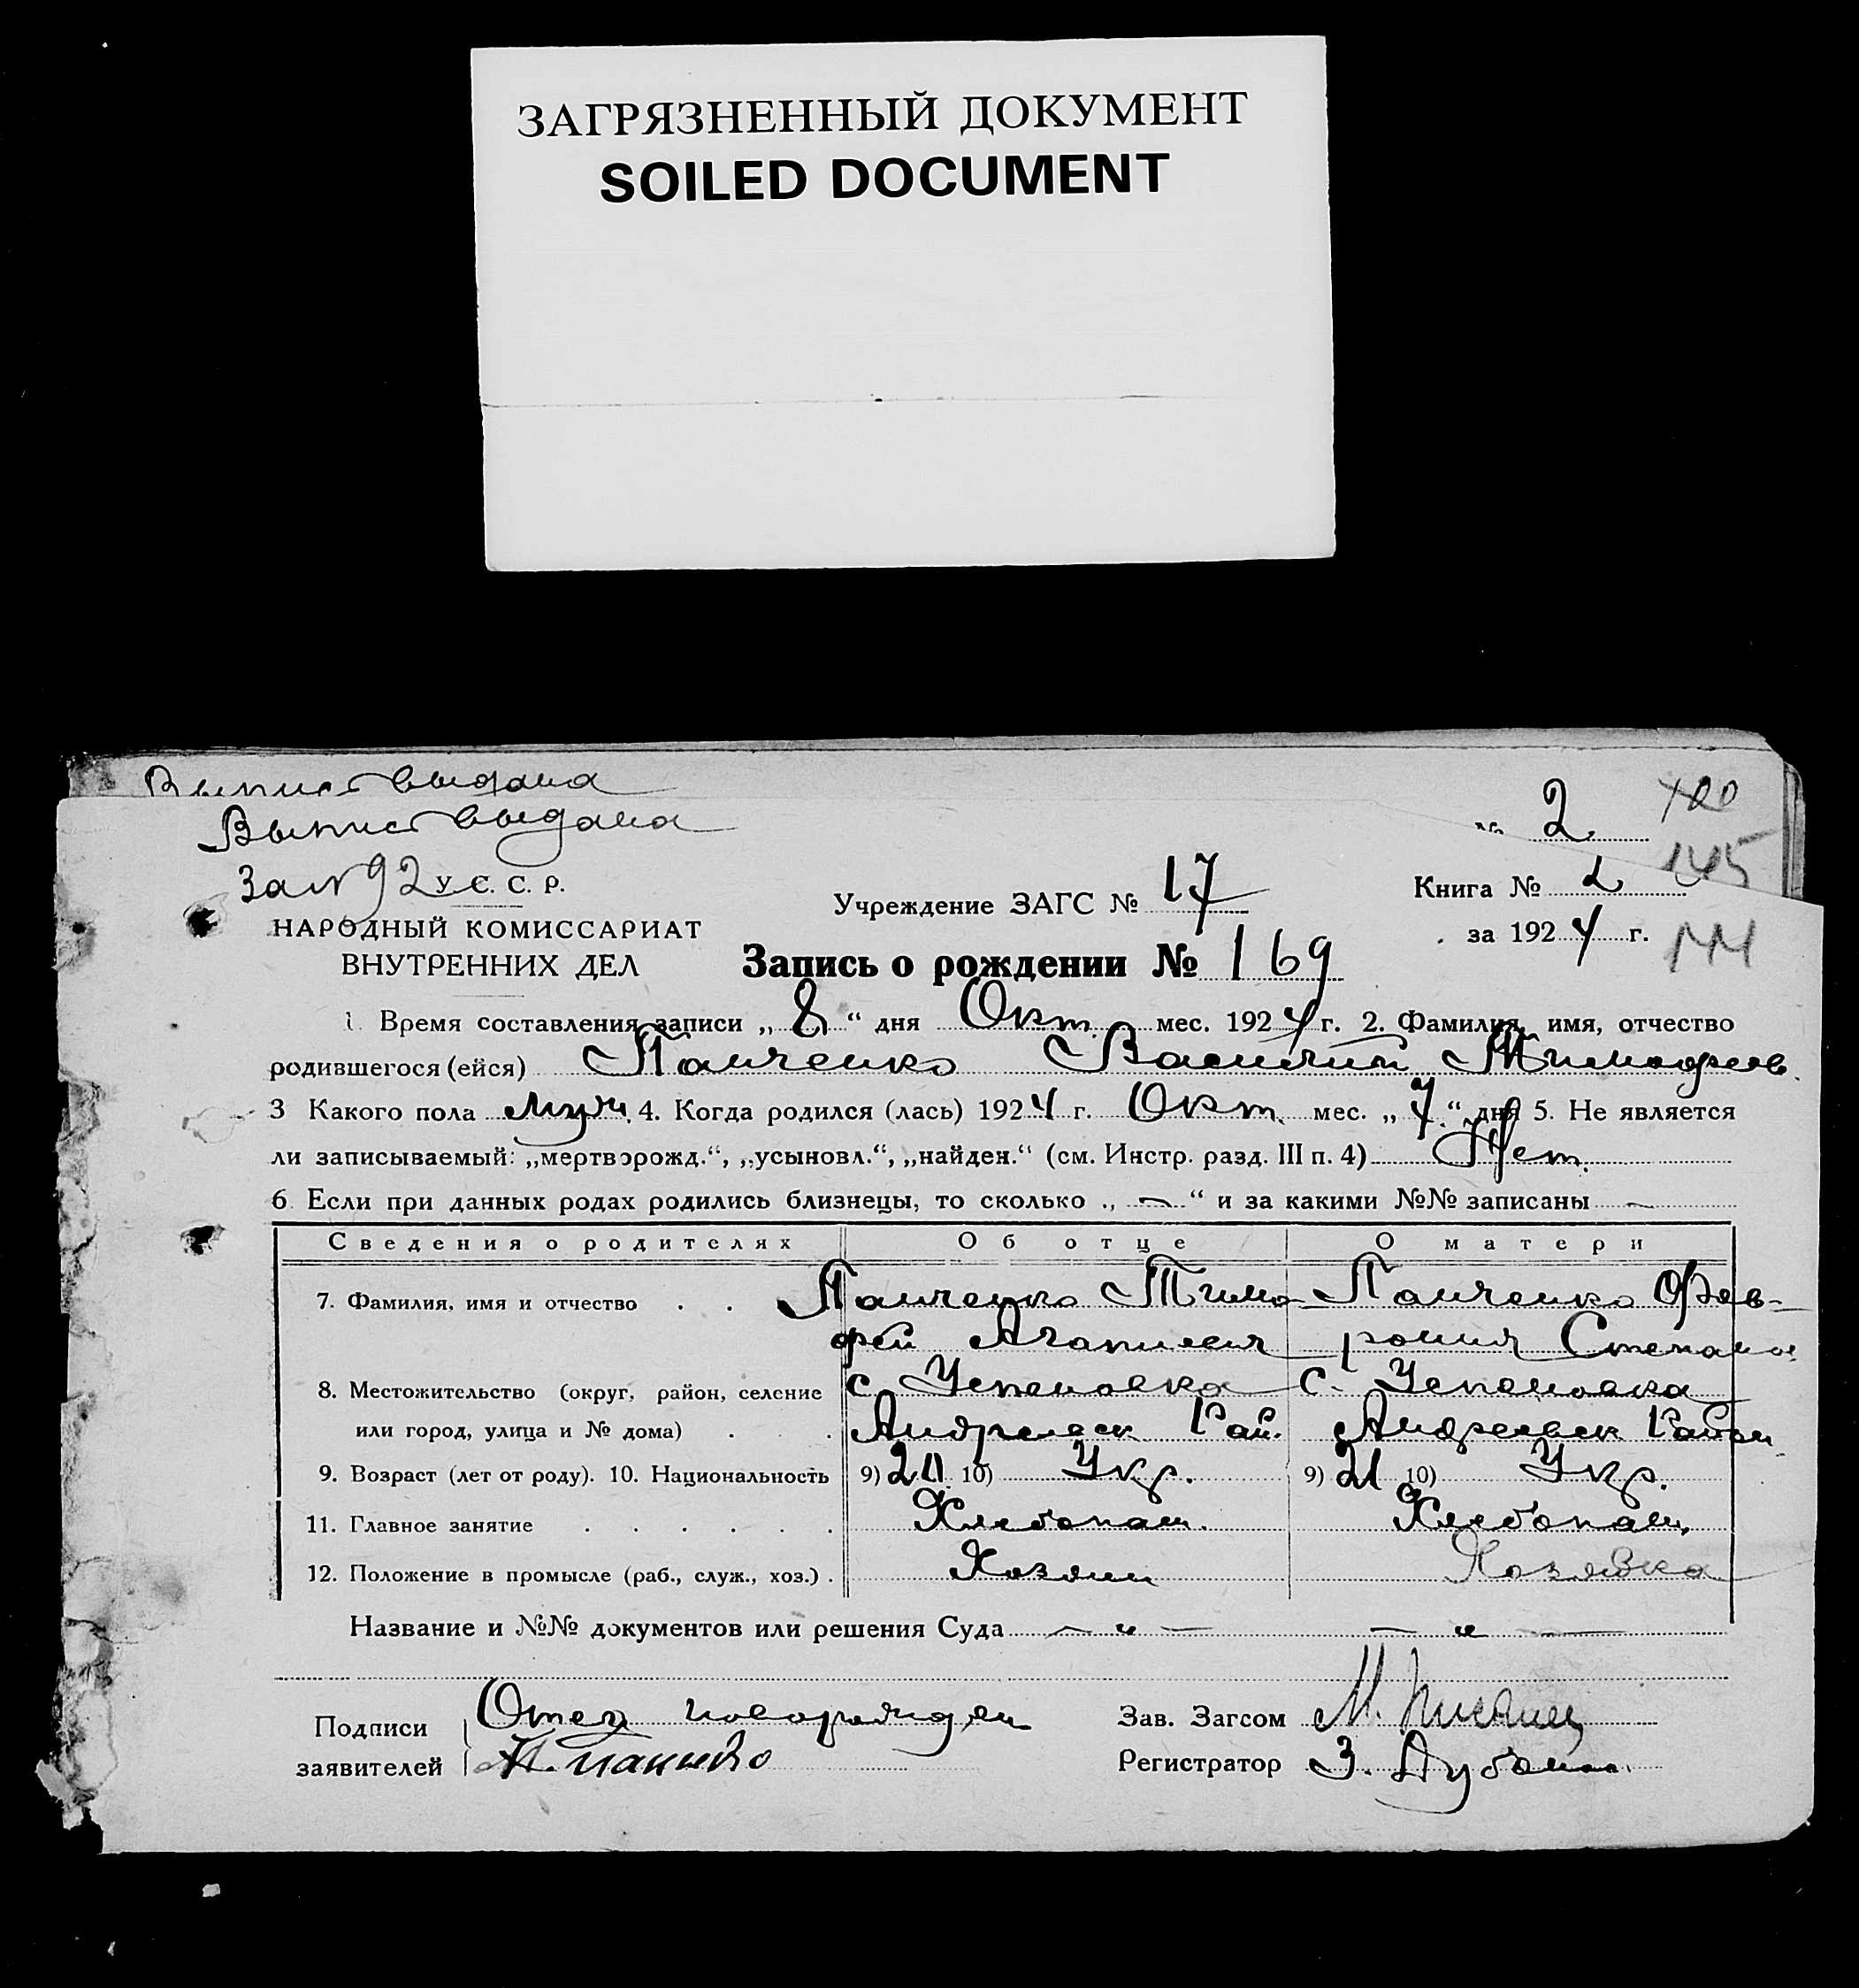 ЗАГРЯЗНЕННЫЙ ДОКУМЕНТ
SOILED DOCUMENT
Выпис выдана
№ 2 120
Выпис выдана
145
За № 92 У С. С. Р.
Учреждение ЗАГС № 17
Книга № 2
НАРОДНЫЙ КОМИССАРИАТ
за 1924 г. 144
ВНУТРЕННИХ ДЕЛ
Запись о рождении № 169
1. Время составления записи „8“ дня Окт. мес. 1924 г. 2. Фамилия, имя, отчество
родившегося (ейся) Панченко Василий Тимофеев.
3 Какого пола муж. 4. Когда родился (лась) 1924 г. Окт. мес. „7“ дня 5. Не является
ли записываемый: „мертворожд.“, „усыновл.“, „найден.“ (см. Инстр. разд. III п. 4) Нет.
6. Если при данных родах родились близнецы, то сколько „ — “ и за какими №№ записаны —
Сведения о родителях Об отце О матери
7. Фамилия, имя и отчество . . Панченко Тимо- Панченко Фев-
фей рония Степанов
8. Местожительство (округ, район, селение с. Успеновка с. Успеновка
или город, улица и № дома) . . . Андреевск Рай. Андреевск Район
9. Возраст (лет от роду). 10. Национальность 9) 20 10) Укр. 9) 21 10) Укр.
11. Главное занятие . . . . . . Хлебопаш. Хлебопаш.
12. Положение в промысле (раб., служ., хоз.) . Хозяин Хозяйка
Название и №№ документов или решения Суда — „ — — „ —
Подписи Отец новорожден
Зав. Загсом М.
заявителей
Регистратор З.